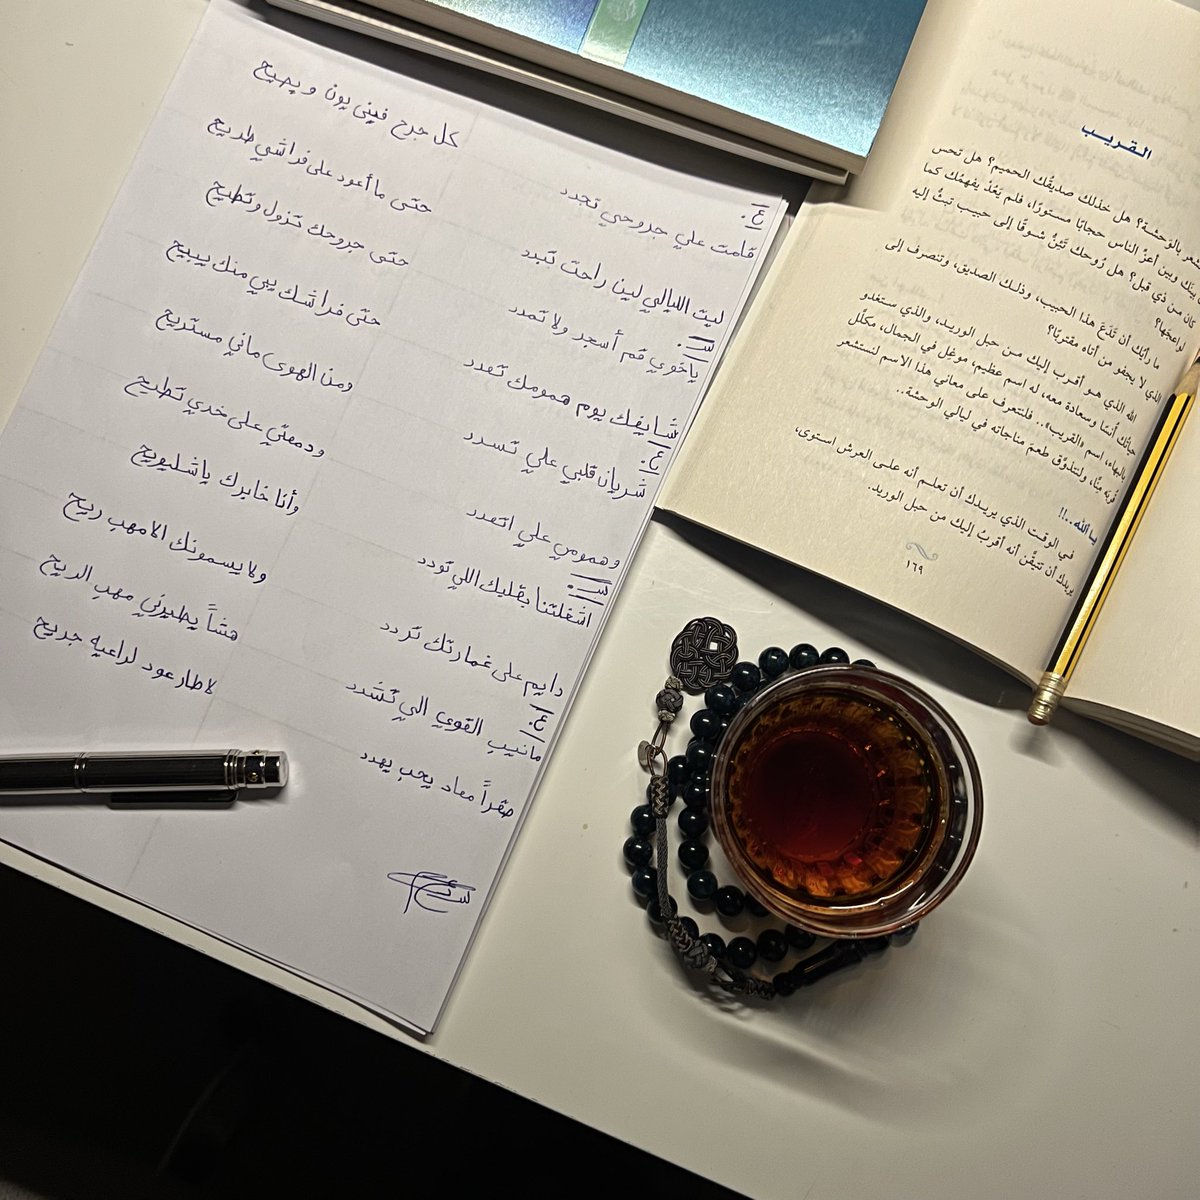 ع.
قامت علي جروحي تجدد
كل جرح فيني يون ويصيح
ليت الليالي لين راحت تبدد
حتى ما أعود على فراشي طريح
س.
ياخوي قم أسجر ولا تمدد
حتى جروحك تزول وتطيح
شايفك يوم همومك تعدد
حتى فراشك يبي منك يبيح
ع.
شريان قلبي علي تسدد
ومن الهوى ماني مستريح
وهمومي علي اتعدد
ودمعتي على خدي تطيح
س.
اشغلتنا بقليك اللي تودد
وأنا خابرك ياشليويح
دايم على غمارتك تردد
ولا يسمونك الا مهب ريح
ع.
مانيب القوي الي تشدد
هشاً يطيرني مهب الريح
صقراً معاد يحب يهدد
لا طار عود لراعيه جريح
القريب
تشعر بالوحشة؟ هل خذلك صديقُك الحميم؟ هل تحس
بينك وبين أعزِّ الناس حجابًا مستورًا، فلم يَعُدْ يفهمُك كما
كان من ذي قبل؟ هل رُوحك تَئِنُّ شوقًا إلى حبيب تبثُّ إليه
لواعجَها؟
ما رأيُك أن تَدَعَ هذا الحبيب، وذلك الصديق، وتنصرف إلى
الذي لا يجفو من أتاه مقتربًا؟
الله الذي هو أقرب إليك من حبل الوريد، والذي ستغدو
حياتُك أنسًا وسعادة معه، له اسم عظيم، موغل في الجمال، مكلّل
بالبهاء، اسم «القريب».. فلنتعرف على معاني هذا الاسم لنستشعر
قُربَه منَّا، ولنتذوَّق طعمَ مناجاته في ليالي الوحشة..
يا الله..!!
في الوقت الذي يريدك أن تعلم أنه على العرش استوى،
يريدك أن تتيقَّن أنه أقربُ إليك من حبل الوريد.
١٦٩